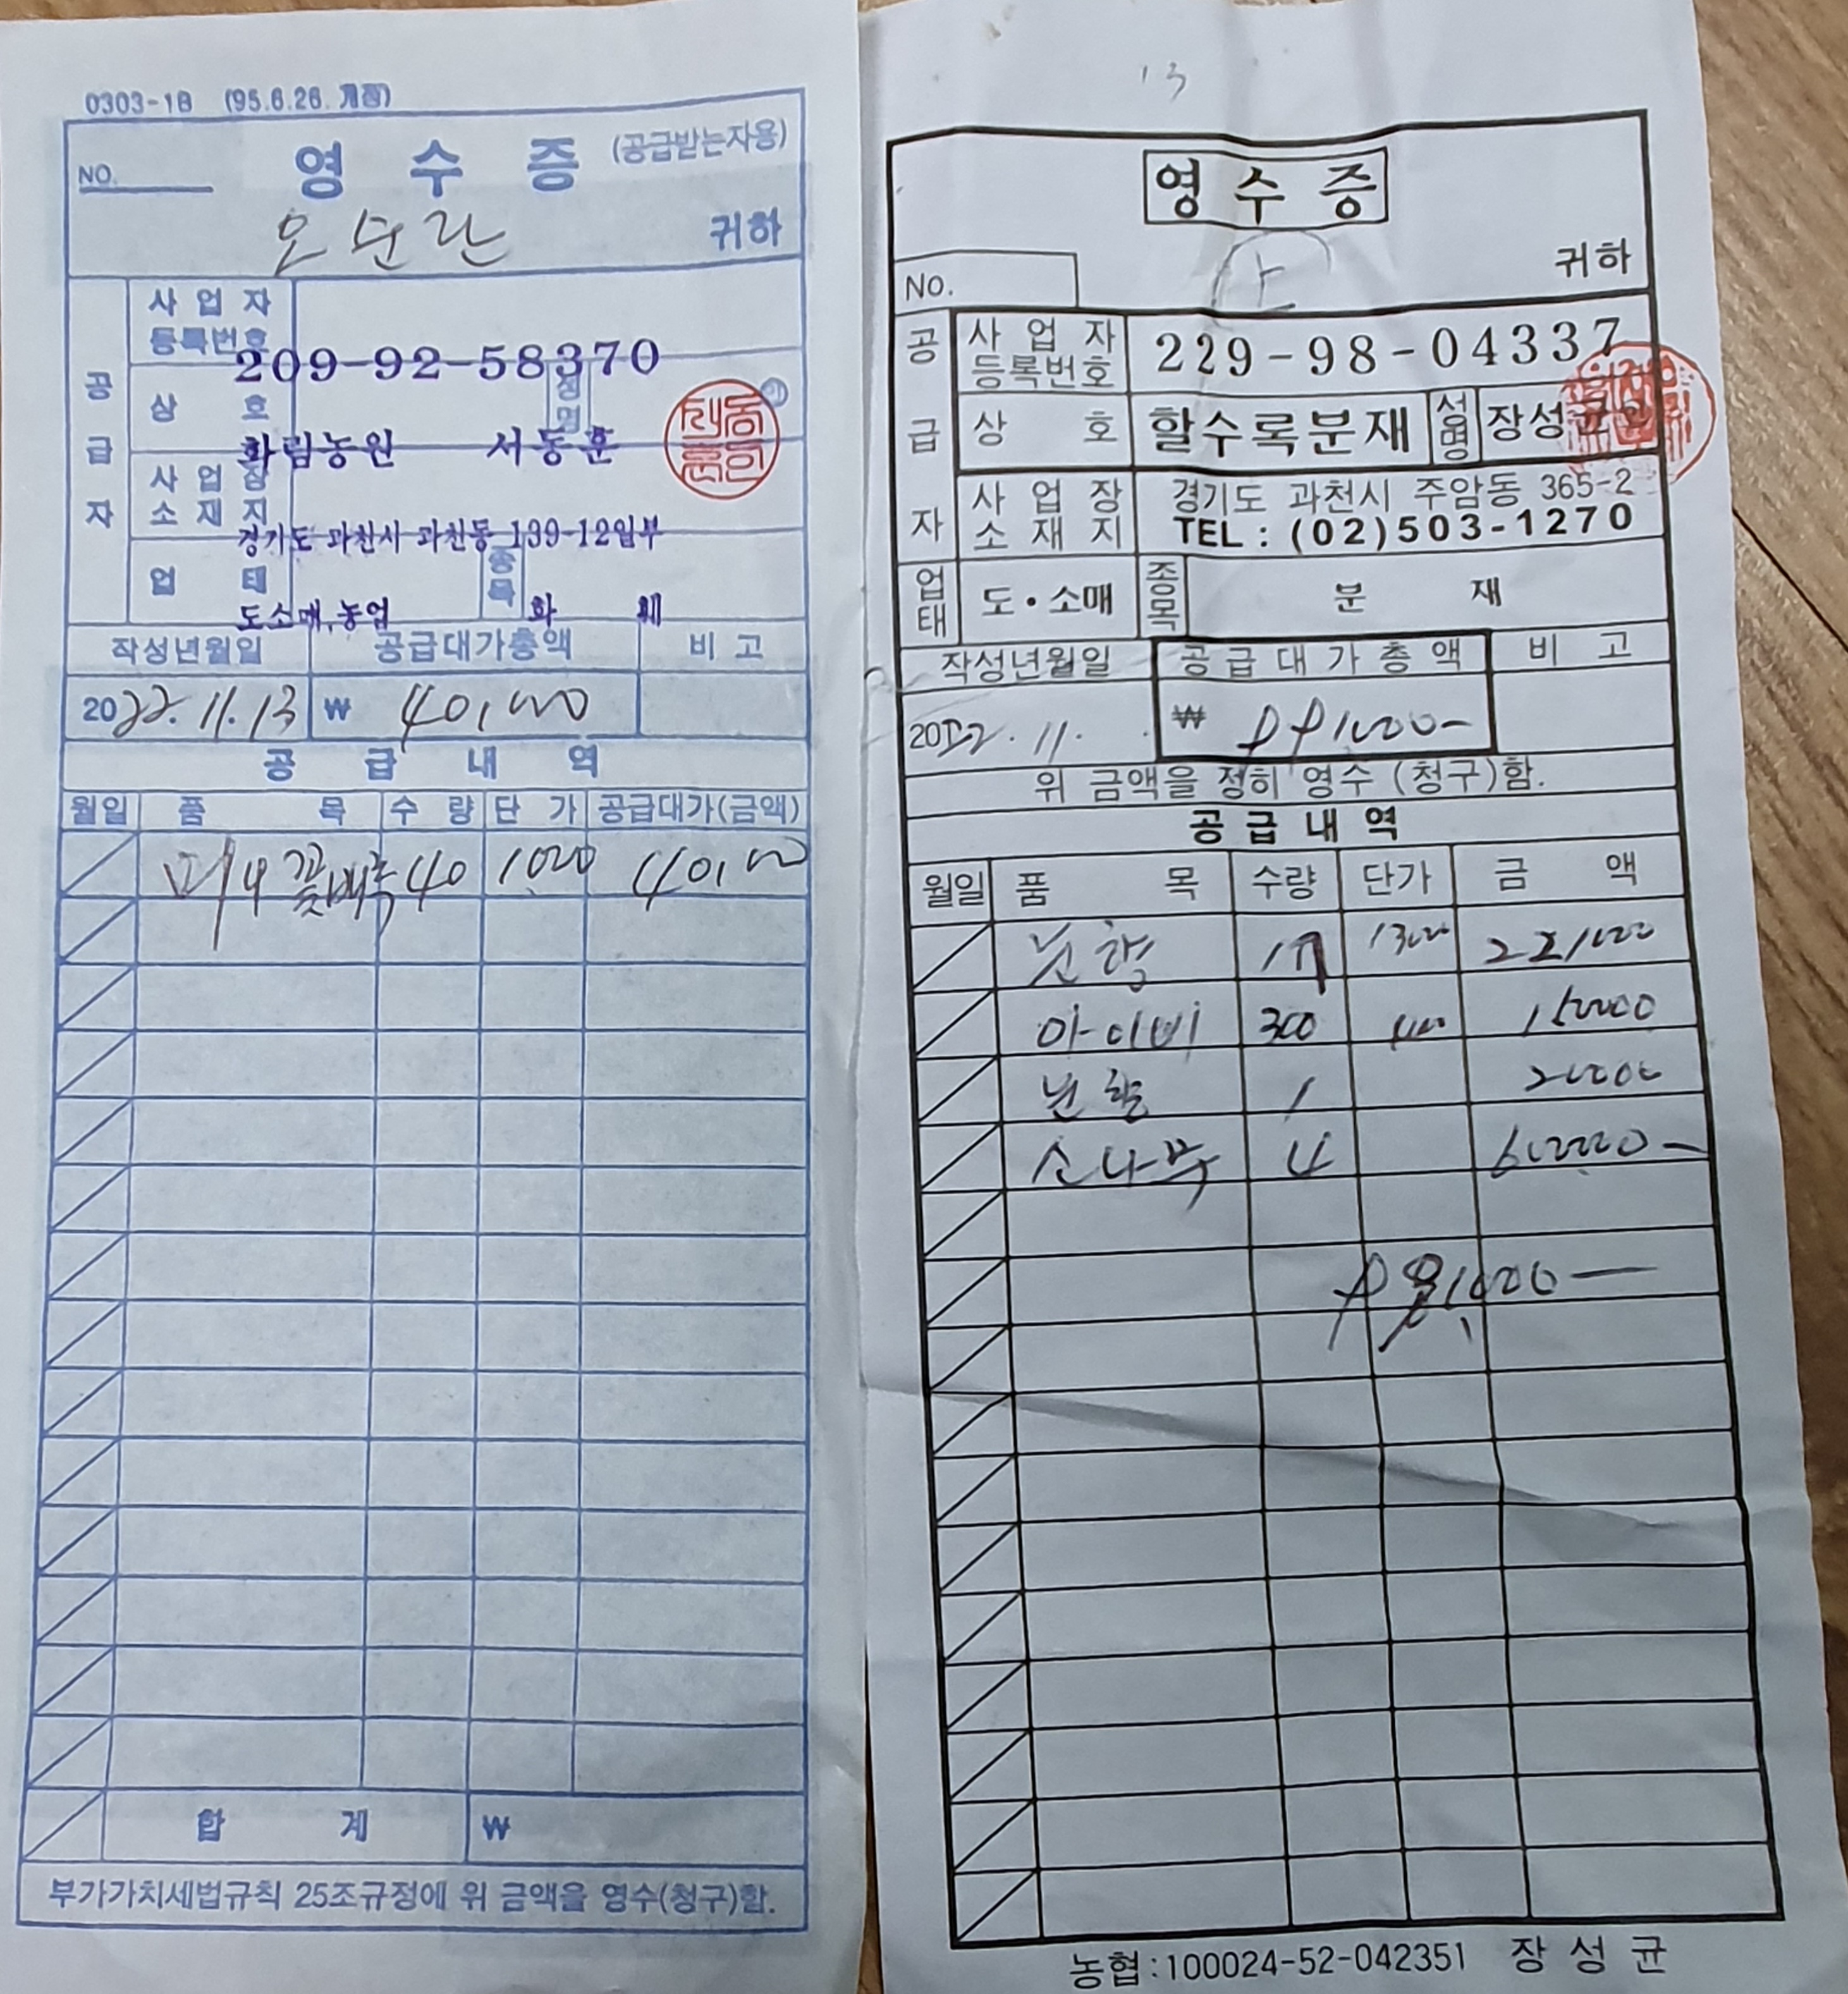 0303-1B (95.6.26. 개정)
NO.
영 수 증 (공급받는자용)
오순란 귀하
공급자
사업자등록번호 209-92-58370
상호 화림농원 성명 서동훈
사업장소재지 경기도 과천시 과천동 139-12일부
업태 도소매,농업 종목 화훼
작성년월일 공급대가총액 비고
2022.11.13 ₩ 40,000
공 급 내 역
월일 품목 수량 단가 공급대가(금액)
미니 꽃배추 40 1,000 40,000
합 계 ₩
부가가치세법규칙 25조규정에 위 금액을 영수(청구)함.
13
영 수 증
귀하
NO.
공급자
사업자등록번호 229-98-04337
상호 할수록분재 성명 장성균
사업장소재지 경기도 과천시 주암동 365-2
TEL : (02)503-1270
업태 도·소매 종목 분재
작성년월일 공급대가총액 비고
2022.11. ₩
위 금액을 정히 영수 (청구)함.
공 급 내 역
월일 품목 수량 단가 금액
17 1300
아이비 300
1
소나무 4
농협:100024-52-042351 장성균